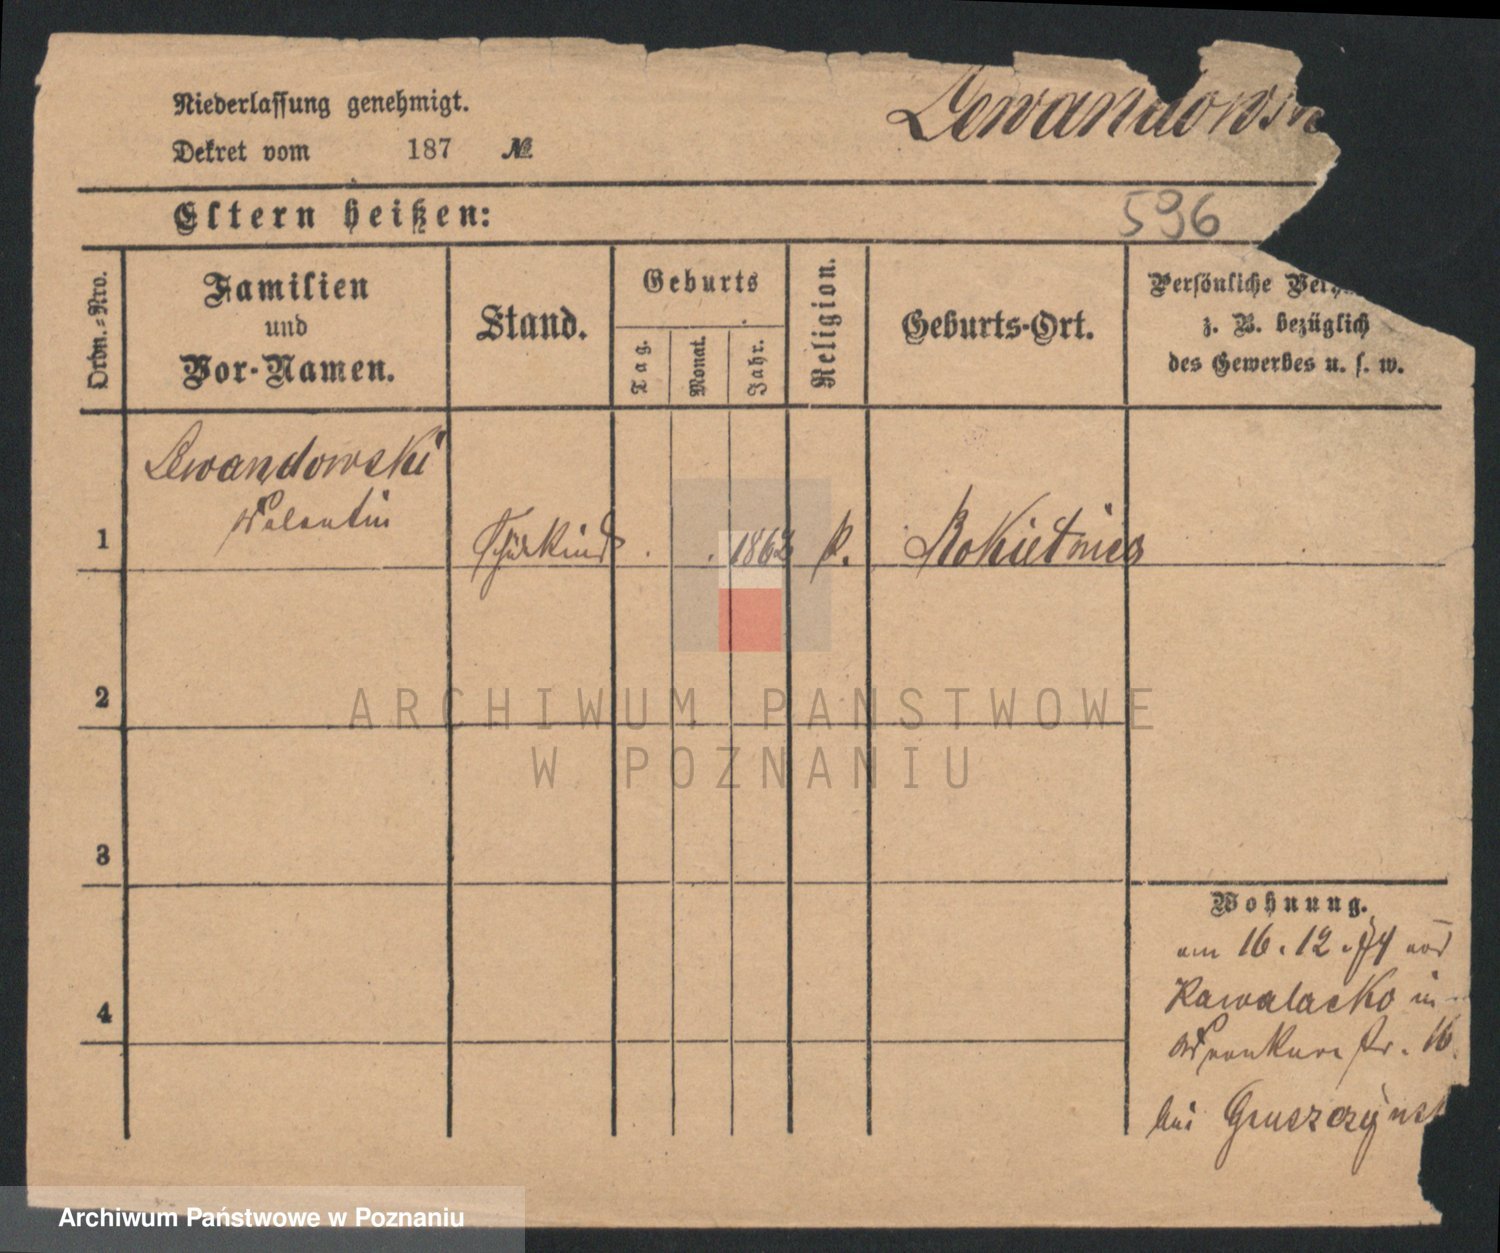 Niederlassung genehmigt.
Dekret vom 187 №
Lewandowsk
Eltern heißen:
596
Ordn.-Nro.
Familien
und
Vor-Namen.
Stand.
Geburts
Tag.
Monat.
Jahr.
Religion.
Geburts-Ort.
Persönliche
z. B. bezüglich
des Gewerbes u. s. w.
Lewandowski
Valentin
1
1863 k. Rokietnica
2
3
4
Wohnung.
am 16. 12. 74 aus
Kawalacko in
16
bei Gruszczynsk
ARCHIWUM PAŃSTWOWE
W POZNANIU
Archiwum Państwowe w Poznaniu